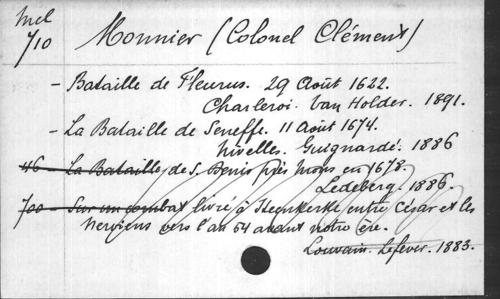 Mel
710
Monnier (Colonel Clément)
- Bataille de Fleurus. 29 Août 1622.
Charleroi. Van Holder. 1891.
- La Bataille de Seneffe. 11 Août 1674.
Nivelles. Guignardé. 1886
46 - La Bataille de S. Denis près Mons en 1678.
Ledeberg. 1886.
700 - Sur un combat livré à Steenkerke entre César et les
Nerviens vers l'an 54 avant notre ère.
Louvain. Lefever. 1883.